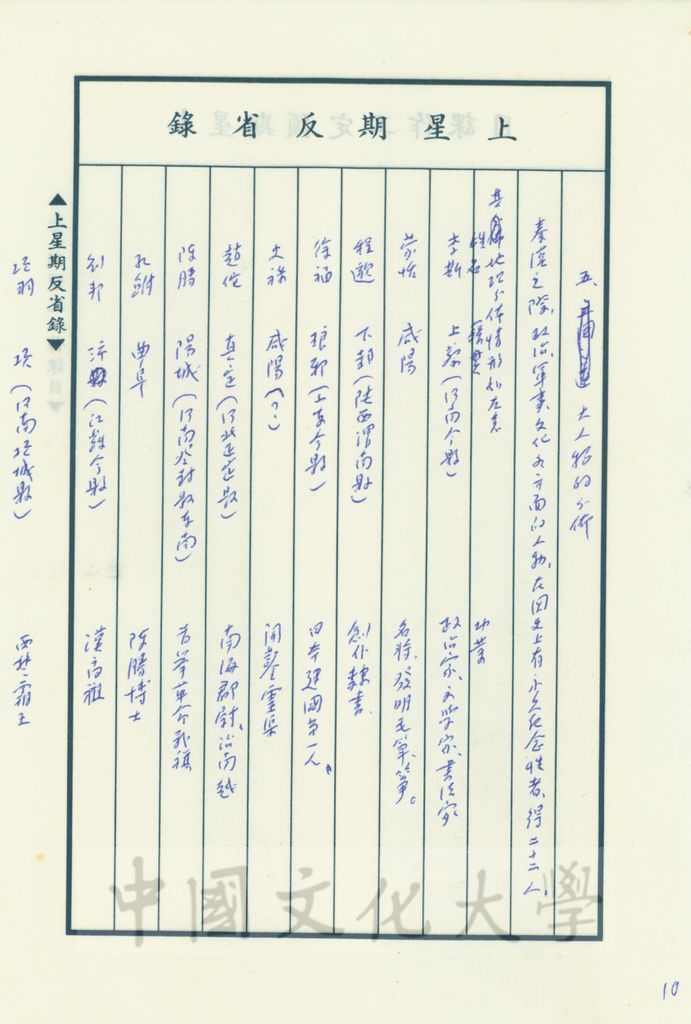 上星期反省錄
五、大人物的分佈
秦漢之際,政治、軍事、文化各方面的人物,在國史上有永久紀念性者,得二十二人,
其地理分佈情形如左表
姓名 籍貫 功業
李斯 上蔡(河南今縣) 政治家、文學家、書法家
蒙恬 咸陽 名將,發明毛筆、箏。
程邈 下邽(陝西渭南縣) 創作隸書
徐福 琅邪(山東今縣) 日本建國第一人
史祿 咸陽(?) 開鑿靈渠
趙佗 真定(河北正定縣) 南海郡尉,治南越
陳勝 陽城(河南登封縣東南) 首舉革命義旗
孔鮒 曲阜 陳勝博士
劉邦 沛縣(江蘇今縣) 漢高祖
項羽 項(河南項城縣) 西楚霸王
▲上星期反省錄▼
中國文化大學
10